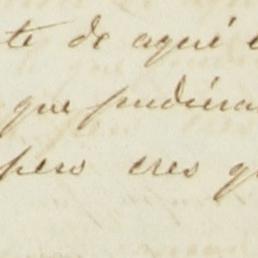 te de aqué
que pudiera
pero eres q